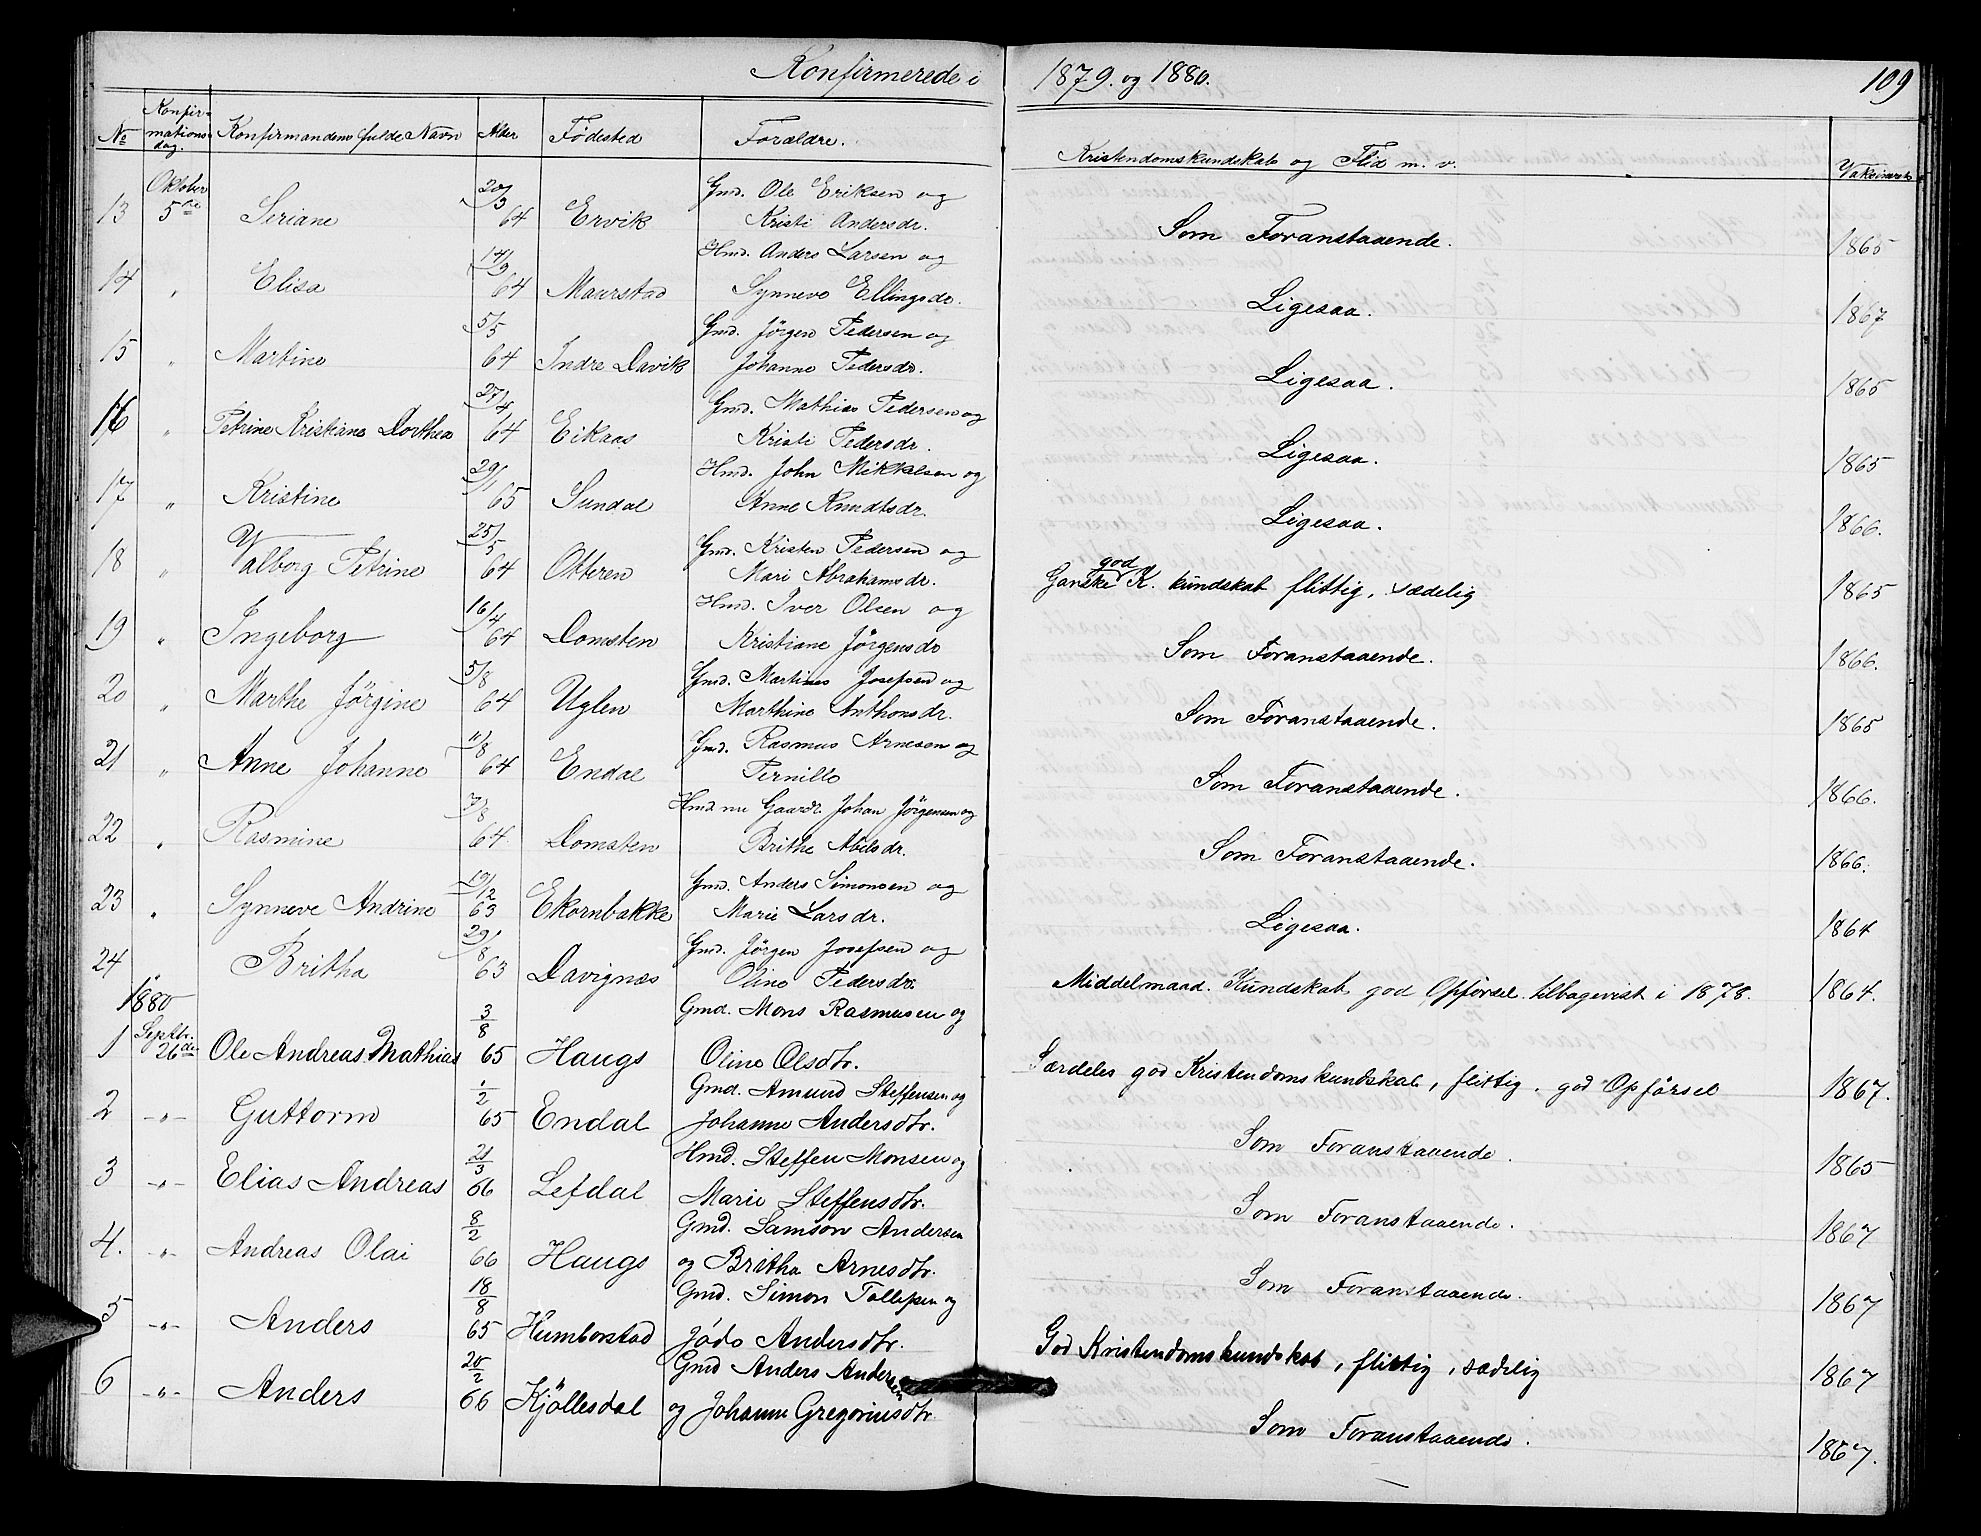 Konfirmerede i 1879. og 1880. 109
No Konfirmationsdag. Konfirmandens fulde Navn Alder Fødested Forældre. Kristendomskundskab og Flid m. v. Vakcineret
Oktober 20/3 Gmd. Ole Eriksen og
13 5te Seriane 64 Ervik Kristi Andersdr. Som Foranstaaende. 1865
14/3 Hmd. Anders Larsen og
14 " Elisa 64 Maurstad Synneve Ellingsdr. Ligesaa. 1867
5/5 Gmd. Jørgen Pedersen og
15 " Martine 64 Indre Davik Johanne Pedersdr. Ligesaa. 1865
27/4 Gmd. Mathias Pedersen og
16 " Petrine Kristiane Dorthea 64 Eikaas Kristi Pedersdr. Ligesaa. 1865
29/1 Hmd. John Mikkelsen og
17 " Kristine 65 Sundal Anne Knudtsdr. Ligesaa. 1866.
25/5 Gmd. Kristen Pedersen og
18 " Valborg Petrine 64 Otteren Mari Abrahamsdr. Ganske god K. kundskab flittig, sædelig 1865
16/4 Hmd. Iver Olsen og
19 " Ingeborg 64 Domsten Kristiane Jørgensdr Som Foranstaaende. 1866.
5/8 Gmd. Martines Josefsen og
20 " Marthe Jørgine 64 Uglen Marthine Anthonsdr. Som Foranstaaende. 1865
11/8 Gmd. Rasmus Arnesen og
21 " Anne Johanne 64 Endal Pernille Som Foranstaaende. 1866.
7/8 Hmd nu Gaardr. Johan Jørgensen og
22 " Rasmine 64 Domsten Brithe Abelsdr. Som Foranstaaende. 1866.
19/12 Gmd. Anders Simonsen og
23 " Synneve Andrine 63 Ekornbakke Marie Larsdr. Ligesaa. 1864
29/8 Gmd. Jørgen Josefsen og
24 " Britha 63 Davignæs Oline Pedersdr. Middelmaad. Kundskab god Opførsel tilbagevist i 1878. 1864.
1880 3/8 Gmd. Mons Rasmusen og
1 Septbr. 26de Ole Andreas Mathias 65 Haugs Oline Olsdtr. Særdeles god Kristendomskundskab, flittig, god Opførsel 1867.
1/2 Gmd. Amund Steffensen og
2 -"- Guttorm 65 Endal Johanne Andersdtr. Som Foranstaaende. 1865
21/3 Hmd. Steffen Monsen og
3 -"- Elias Andreas 66 Lefdal Marie Steffensdtr. Som Foranstaaende. 1867
8/2 Gmd. Samson Andersen
4. -"- Andreas Olai 66 Haugs og Britha Arnesdtr. Som Foranstaaende. 1867
18/8 Gmd. Simon Tollefsen og
5 -"- Anders 65 Humborstad Jøde Andersdtr. God Kristendomskundskab, flittig, sædelig 1867
20/2 Gmd Anders Andersen
6 -"- Anders 66 Kjöllesdal og Johanne Gregoriusdtr Som Foranstaaende. 1867.